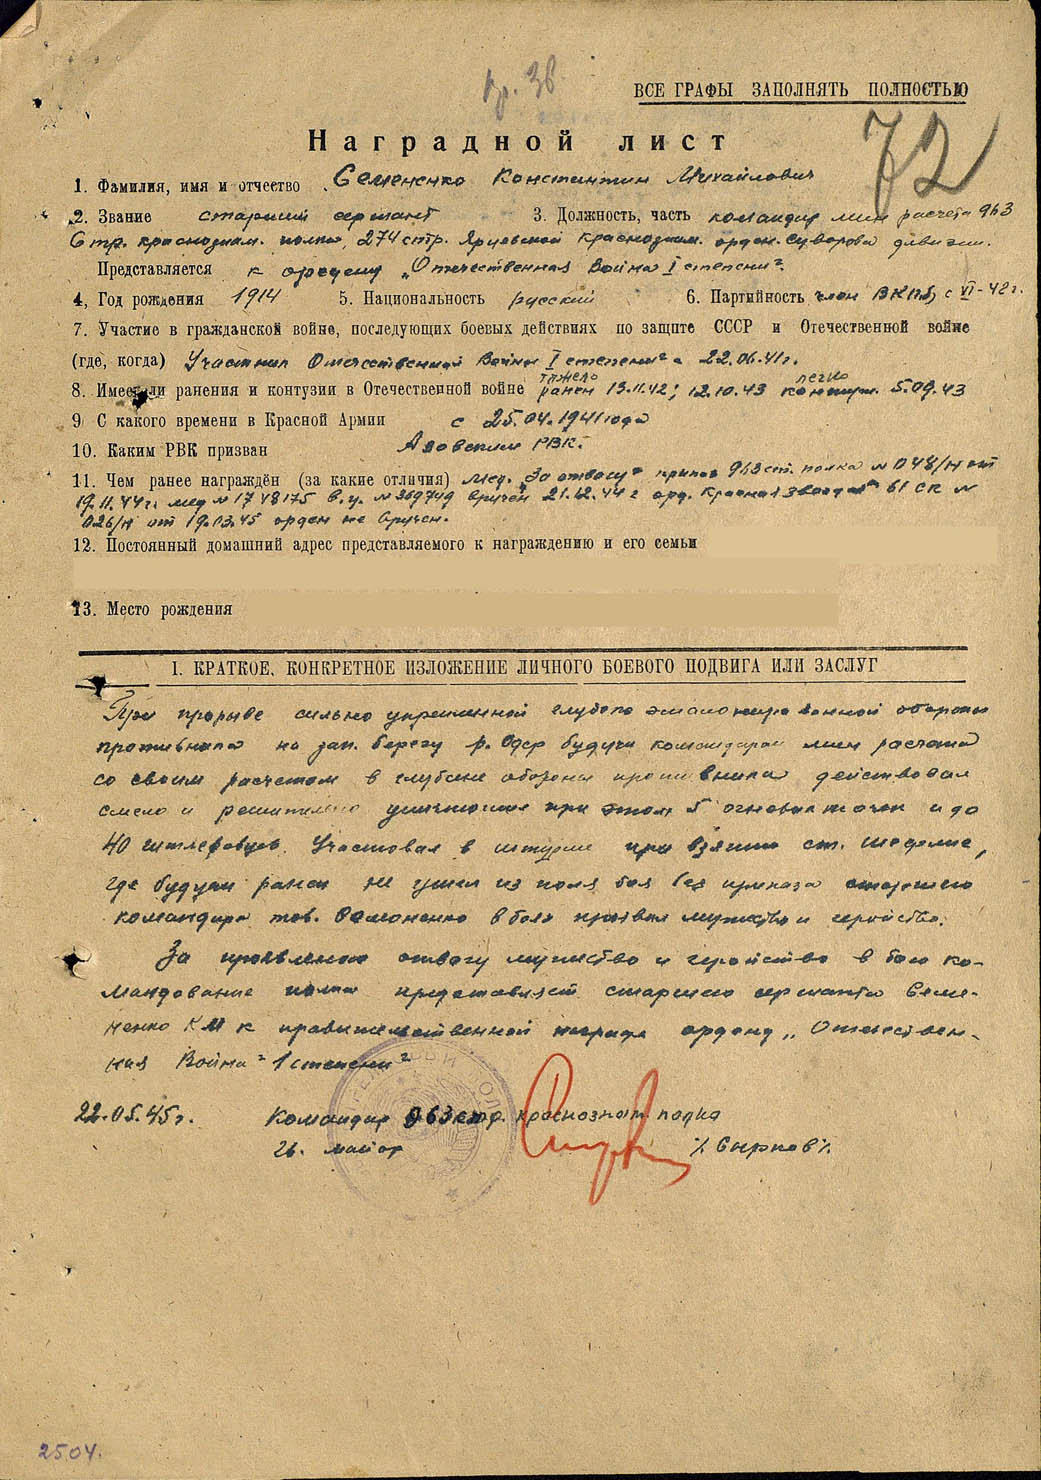 гр. 36
ВСЕ ГРАФЫ ЗАПОЛНЯТЬ ПОЛНОСТЬЮ
72
Наградной лист
1. Фамилия, имя и отчество Семененко Константин Михайлович
2. Звание старший сержант 3. Должность, часть командир мин расчета 963
Стр. краснознам. полка, 274 стр. Ярцевской краснознам. орден. Суворова дивизии.
Представляется к ордену „Отечественная Война I степени"
4, Год рождения 1914 5. Национальность русский 6. Партийность член ВКП(б) с VI-42г.
7. Участие в гражданской войне, последующих боевых действиях по защите СССР и Отечественной войне
(где, когда) Участник Отечественной Войны I степени" с 22.06.41г.
8. Имеет ли ранения и контузии в Отечественной войне тяжело ранен 13.11.42; 12.10.43 легко контуж. 5.09.43
9 С какого времени в Красной Армии с 25.04.1941 года
10. Каким РВК призван Азовским РВК.
11. Чем ранее награждён (за какие отличия) мед. „За отвагу" приказ 963 ст. полка № 048/н от
19.11.44г. мед № 1748175 в.у. № 369749 вручен 21.12.44 г орд. Красная звезда" 61 СК №
026/н от 19.03.45 орден не вручен.
12. Постоянный домашний адрес представляемого к награждению и его семьи
13. Место рождения
I. КРАТКОЕ, КОНКРЕТНОЕ ИЗЛОЖЕНИЕ ЛИЧНОГО БОЕВОГО ПОДВИГА ИЛИ ЗАСЛУГ
При прорыве сильно укрепленной глубоко эшалонированной обороны
противника на зап. берегу р. Одер будучи командиром мин расчета
со своим расчетом в глубине обороны противника действовал
смело и решительно уничтожив при этом 5 огневых точек и до
40 гитлеровцев. Участвовал в штурме при взятии ст.
где будучи ранен не ушел из поля боя без приказа старшего
командира тов. Семененко в бою проявил мужество и геройство.
За проявленою отвагу мужество и геройство в бою ко-
мандование полка представляет старшего сержанта Семе-
ненко КМ к правительственной награде ордену „Отечествен-
ная Война" 1 степени"
22.05.45г. Командир 963 стр. краснознам. полка
гв. майор /Сырков/.
2504.